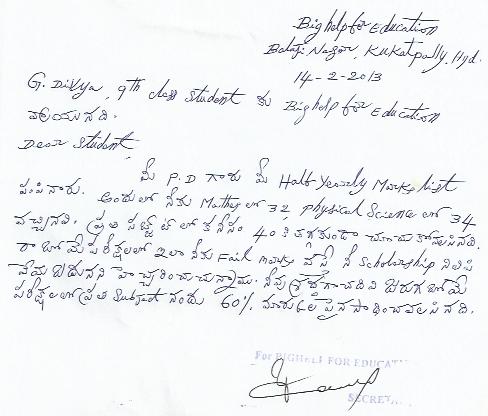 Big help for Education
Balaji Nagar, Kukatpally, Hyd.
14-2-2013
G. Divya, 9th class student కు Big help for Education
వ్రాయునది.
Dear Student,
మీ P.D గారు మీ Half Yearly Marks list
పంపినారు. అందులో నీకు Maths లో 32, Physical Science లో 34
వచ్చినవి. ప్రతి సబ్జెక్ట్ లో కనీసం 40 కి తగ్గకుండా చూచుకోవలసినది.
రాబోయే పరీక్షలలో ఇలా నీకు Fail marks వస్తే నీ Scholarship నిలిపి
వేయబడునని హెచ్చరించుచున్నాము. నీవు శ్రద్ధగా చదివి జరుగబోయే
పరీక్షలలో ప్రతి Subject నందు 60% మార్కులపైన సాధించవలసినది.
For BIGHELP FOR EDUCAT
SECRETA